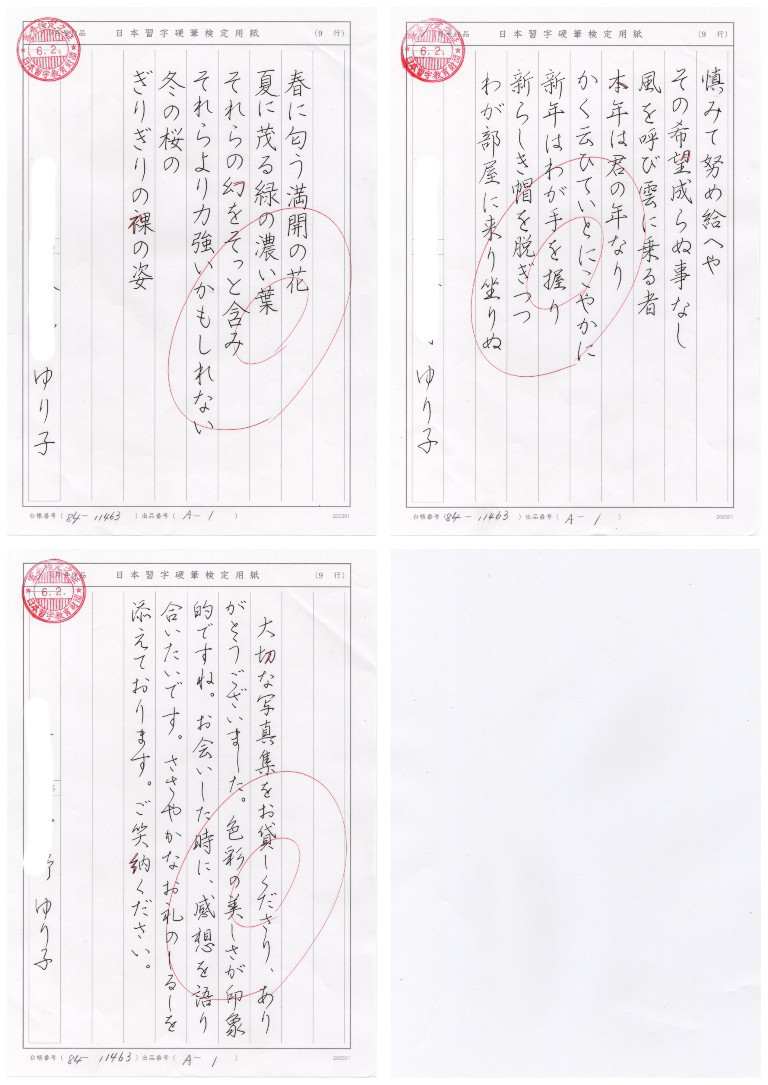 日本習字硬筆検定用紙
(9 行)
6.2.
日本習字教育財団
春に匂う満開の花
夏に茂る緑の濃い葉
それらの幻をそっと含み
それらより力強いかもしれない
冬の桜の
ぎりぎりの裸の姿
ゆり子
台帳番号(84-11463)出品番号(A-1)
200301
日本習字硬筆検定用紙
(9 行)
6.2.
日本習字教育財団
慎みて努め給へや
その希望成らぬ事なし
風を呼び雲に乗る者
本年は君の年なり
かく云ひていとにこやかに
新年はわが手を握り
新らしき帽を脱ぎつつ
わが部屋に来り坐りぬ
ゆり子
台帳番号(84-11463)出品番号(A-1)
200301
日本習字硬筆検定用紙
(9 行)
6.2.
日本習字教育財団
大切な写真集をお貸しくださり、あり
がとうございました。色彩の美しさが印象
的ですね。お会いした時に、感想を語り
合いたいです。ささやかなお礼のしるしを
添えております。ご笑納ください。
ゆり子
台帳番号(84-11463)出品番号(A-1)
200301